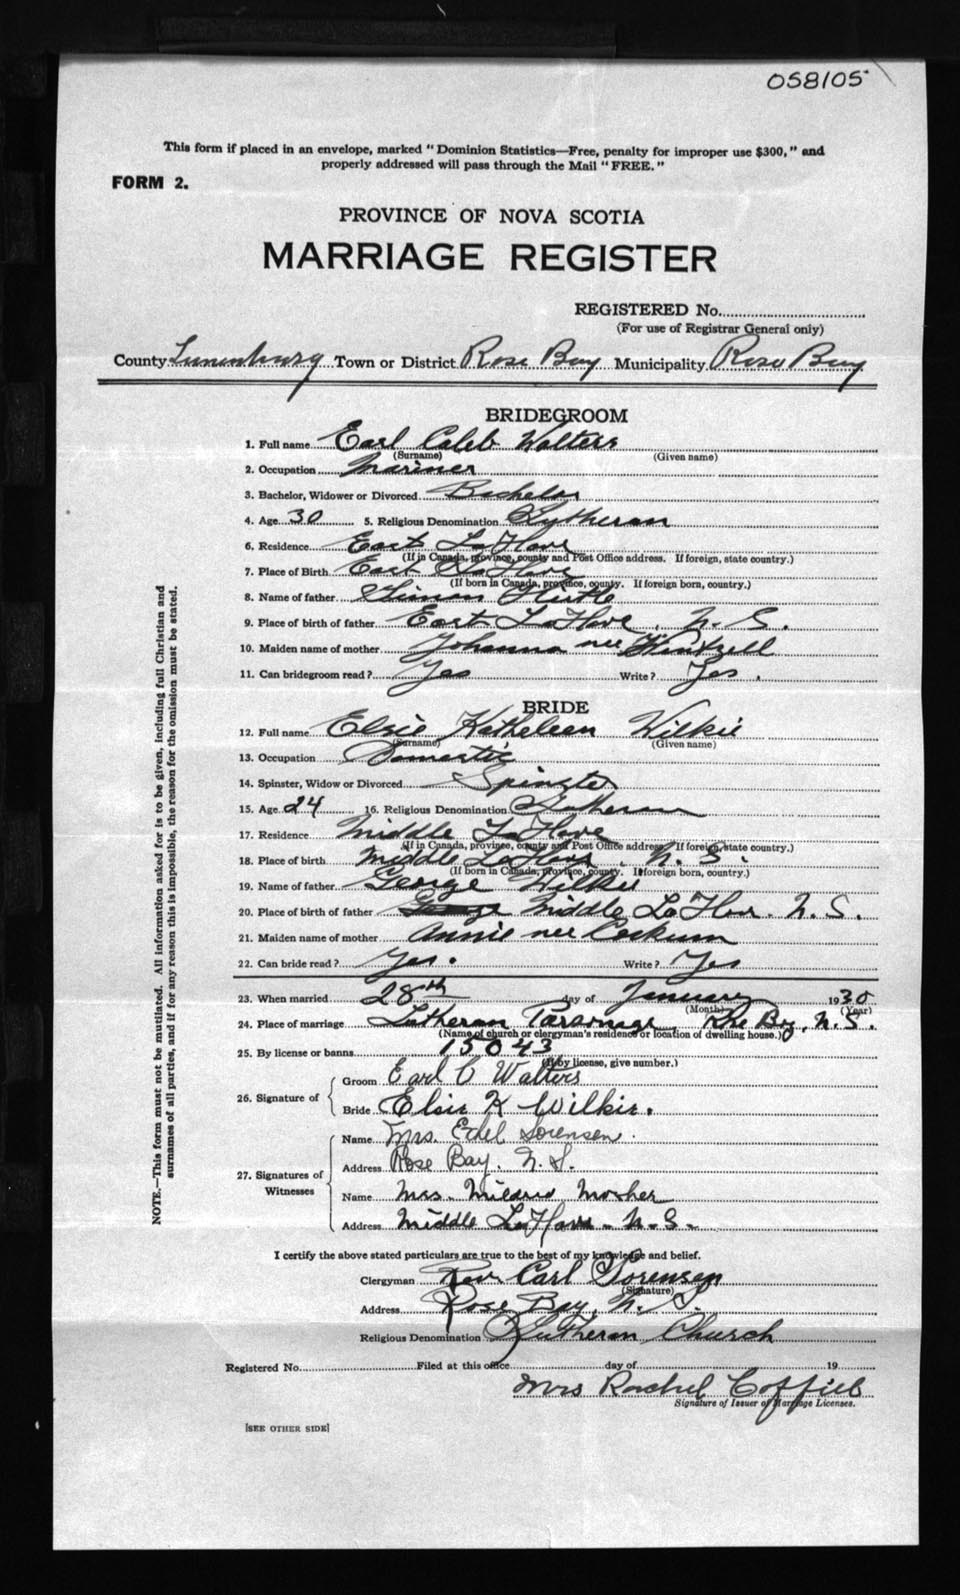 058105
This form if placed in an envelope, marked "Dominion Statistics—Free, penalty for improper use $300," and
properly addressed will pass through the Mail "FREE."
FORM 2.
PROVINCE OF NOVA SCOTIA
MARRIAGE REGISTER
REGISTERED No.
(For use of Registrar General only)
County Lunenburg Town or District Rose Bay Municipality Rose Bay
BRIDEGROOM
1. Full name Earl Caleb Walters
(Surname) (Given name)
2. Occupation Mariner
3. Bachelor, Widower or Divorced Bachelor
4. Age 30 5. Religious Denomination Lutheran
6. Residence East LaHave
(If in Canada, province, county and Post Office address. If foreign, state country.)
7. Place of Birth East LaHave
(If born in Canada, province, county. If foreign born, country.)
8. Name of father Simon
9. Place of birth of father East LaHave, N. S.
10. Maiden name of mother Johanna nee
11. Can bridegroom read? Yes Write? Yes.
BRIDE
12. Full name Elsie Katheleen Wilkie
(Surname) (Given name)
13. Occupation Domestic
14. Spinster, Widow or Divorced Spinster
15. Age 24 16. Religious Denomination Lutheran
17. Residence Middle LaHave
(If in Canada, province, county and Post Office address. If foreign, state country.)
18. Place of birth Middle LaHave, N. S.
(If born in Canada, province, county. If foreign born, country.)
19. Name of father George Wilkie
20. Place of birth of father George Middle LaHave. N. S.
21. Maiden name of mother Annie nee Corkum
22. Can bride read? Yes. Write? Yes
23. When married 28th day of January 1930
(Month) (Year)
24. Place of marriage Lutheran Parsonage, Rose Bay, N. S.
(Name of church or clergyman's residence or location of dwelling house.)
25. By license or banns 15043
(If by license, give number.)
26. Signature of
Groom Earl C Walters
Bride Elsie K Wilkie.
27. Signatures of Witnesses
Name Mrs. Edel Sorensen.
Address Rose Bay. N. S.
Name Mrs. Mildred Mosher
Address Middle LaHave. N. S.
I certify the above stated particulars are true to the best of my knowledge and belief.
Clergyman Rev Carl Sorensen
(Signature)
Address Rose Bay, N. S.
Religious Denomination Lutheran Church
Registered No. Filed at this office day of 19
Mrs Rachel
Signature of Issuer of Marriage Licenses.
[SEE OTHER SIDE]
NOTE.—This form must not be mutilated. All information asked for is to be given, including full Christian and
surnames of all parties, and if for any reason this is impossible, the reason for the omission must be stated.